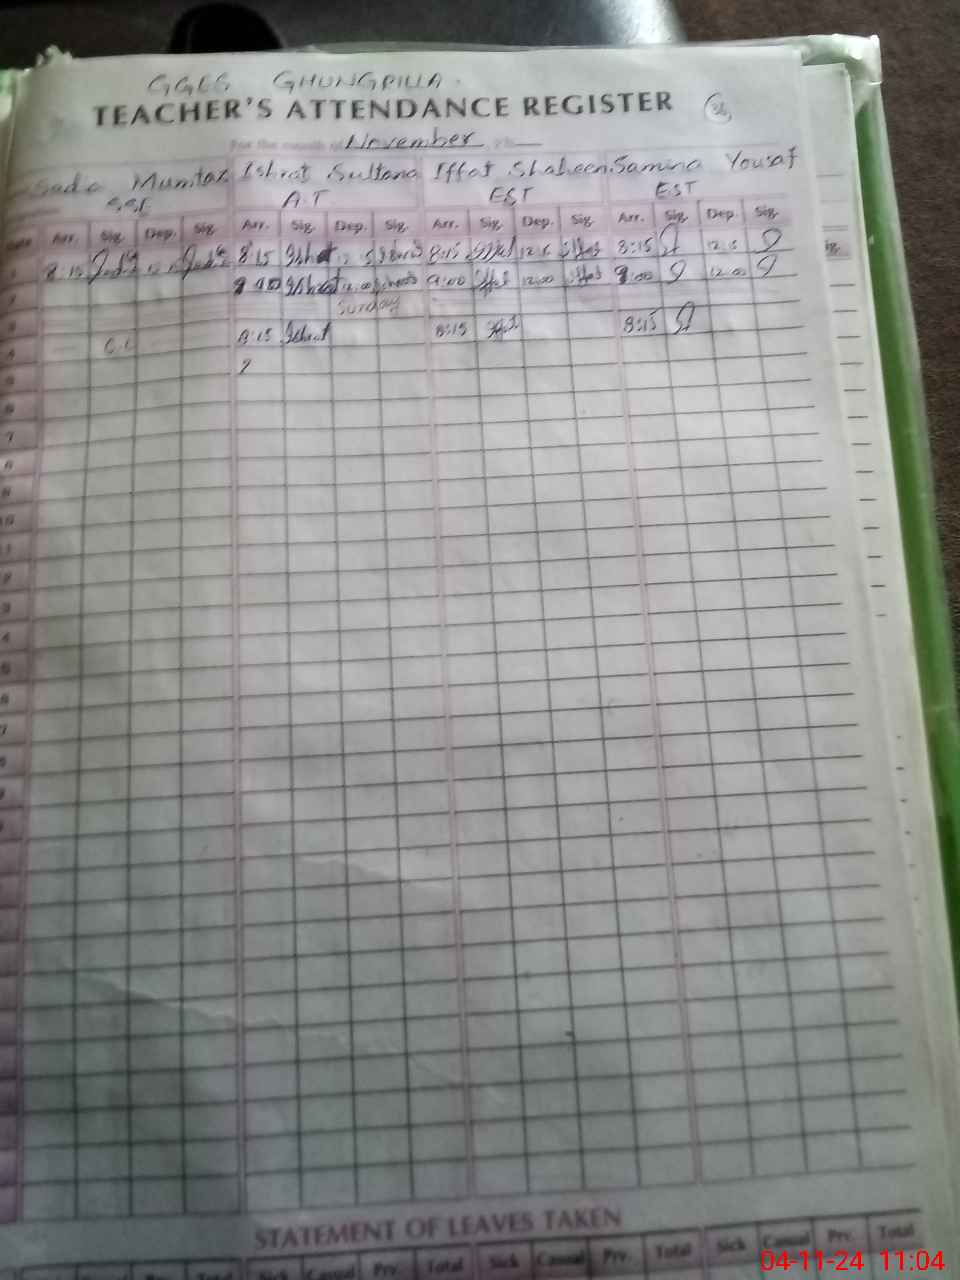 GGES GHUNGPILLA.
TEACHER'S ATTENDANCE REGISTER 36
For the month of November
Sadia Mumtaz Ishrat Sultana Iffat Shaheen Samina Yousaf
S.S.E A.T EST EST
Date Arr. Sig. Dep. Sig. Arr. Sig. Dep. Sig. Arr. Sig. Dep. Sig. Arr. Sig. Dep. Sig.
1 8:15 8:15 Ishrat 12 5 8:15 Iffat 12 5 Iffat 8:15 12 5
2 Ishrat 12:00 9:00 Iffat 12:00 Iffat 9:00 12:00
3 Sunday
4 C.L 8:15 Ishrat 8:15 8:15
5
6
7
8
9
10
11
2
3
4
5
6
7
8
9
STATEMENT OF LEAVES TAKEN
Casual Prv. Total Sick Casual Prv. Total Sick Casual Prv. Total
04-11-24 11:04